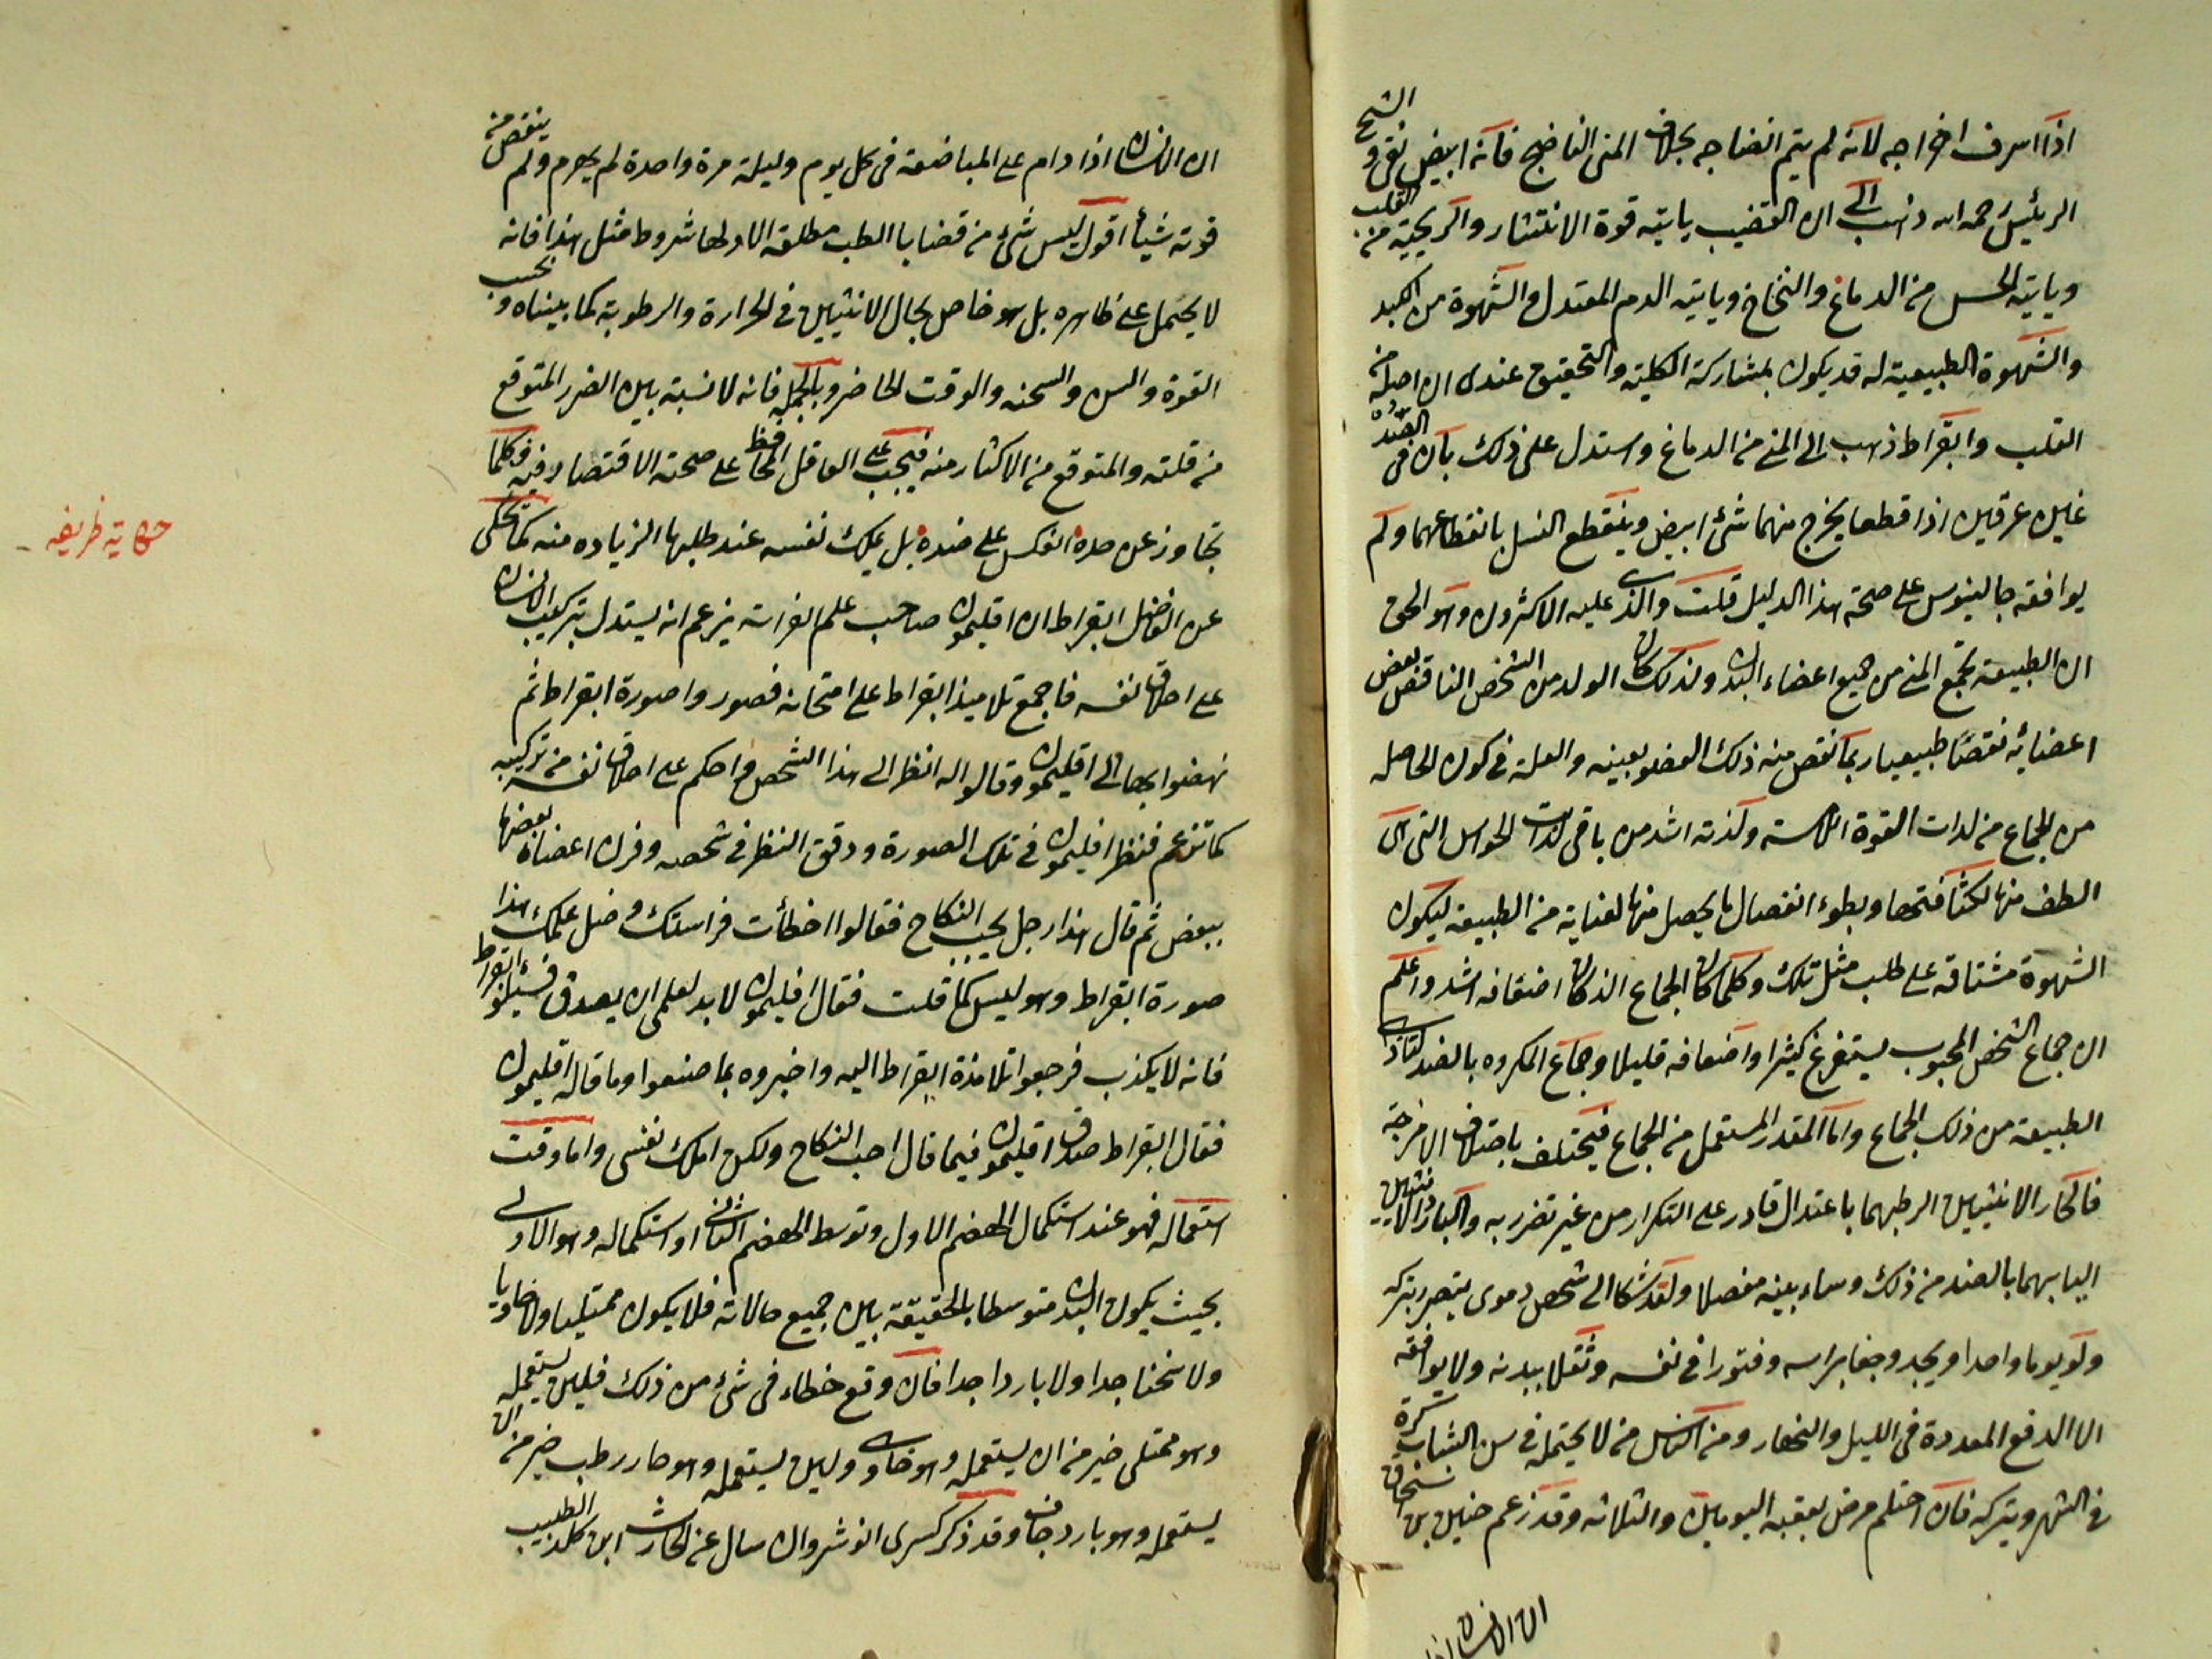 اذا اسرف اخراجه لانه لم يتم انضاجه بخلاف المنى الناضج فانه ابيض نقى و الشيخ
الرئيس رحمه الله ذهب الى ان القضيب ياتيه قوة الانتشار والريحية من القلب
وياتيه الحس من الدماغ والنخاع وياتيه الدم المعتدل والشهوة من الكبد
والشهوة الطبيعية له قد يكون بمشاركة الكلية والتحقيق عندى ان اصله من
القلب وابقراط ذهب الى المنى من الدماغ واستدل على ذلك بان فى
عرقين اذا قطعا يخرج منهما شئ ابيض وينقطع النسل بانقطاعهما ولم
يوافقه جالينوس على صحة هذا الدليل قلت والذى عليه الاكثرون وهو الحق
ان الطبيعة تجمع المنى من جميع اعضاء البدن ولذلك كان الولد من الشخص الناقص بعض
اعضائه نقصا طبيعيا ربما نقص منه ذلك العضو بعينه والعلة فى كون الحاصله
من الجماع من لذات القوة اللامسة ولذته اشد من باقى لذات الحواس التى هى
الطف منها لكثافتها وبطوء انفصال ما يحصل منها لعناية من الطبيعة ليكون
الشهوة مشتاقة على طلب مثل تلك وكلما كان الجماع الذ كان اضعافه اشد واعلم
ان جماع الشخص المحبوب يستفرغ كثيرا واضعافه قليلا وجماع المكروه بالضد لتاذى
الطبيعة من ذلك الجماع واما المقدر المستعمل من الجماع فيختلف باختلاف الامزجة
فالحار الانثيين الرطبهما باعتدال قادر على التكرار من غير تضرر به والبارد الانثيين
اليابسهما بالضد من ذلك وساء بينه مفصلا ولقد شكا الى شخص دموى يتضرر بتركه
ولو يوما واحدا ويجد وجعا براسه وفتورا فى نفسه وثقلا ببدنه ولا يوافقه
الا الدفع المعدودة فى الليل والنهار ومن الناس من لا يحتمله فى سن الشباب مرة
فى الشهر ويتركه فان احتلم مرض بعقبه اليومين والثلاثه وقد زعم حنين بن اسحاق
ان الانسان اذا
ان الانسان اذا دام على المباضعة فى كل يوم وليلة مرة واحدة لم يهرم ولم ينقص من
قوته شيأ اقول ليس شئ من قضايا الطب مطلقه الا ولها شروط مثل هذا فانه
لا يحتمل على ظاهره بل هو خاص بحال الانثيين فى الحرارة والرطوبة كما بيناه و بحسب
القوة والسن والسحنه والوقت الحاضر وبالجمله فانه لا نسبة بين الضرر المتوقع
من قلته والمتوقع من الاكثار منه فيجب على العاقل الحافظ على صحته الاقتصار فيه فكلما
تجاوز عن حده انعكس على ضده بل يملك نفسه عند طلبها الزياده منه كما حكى
عن الفاضل ابقراط ان اقليمون صاحب علم الفراسة يزعم انه يستدل بتركيب الانسان
على اخلاق نفسه فاجمع تلاميذ ابقراط على امتحانه فصوروا صورة ابقراط ثم
نهضوا بها الى اقليمون وقالوا له انظر الى هذا الشخص واحكم على اخلاق نفسه من تركيبه
كما تزعم فنظر اقليمون فى تلك الصورة ودقق النظر فى شخصه وقرن اعضاه بعضها
ببعض ثم قال هذا رجل يحب النكاح فقالوا اخطأت فراستك وضل علمك هذا
صورة ابقراط وهو ليس كما قلت فقال اقليمون لا بد لعلمى ان يصدق فسيئلوا ابقراط
فانه لا يكذب فرجعوا تلامذة ابقراط اليه واخبروه بما صنعوا وما قاله اقليمون
فقال ابقراط صدق اقليمون فيما قال احب النكاح ولكن املك نفسى واما وقت
استعماله فهو عند استكمال الهضم الاول وتوسط الهضم الثانى او استكماله وهو الاولى
بحيث يكون البدن متوسطا بالحقيقة بين جميع حالاته فلا يكون ممتليا ولا خاويا
ولا سخنا جدا ولا باردا جدا فان وقع خطاء فى شئ من ذلك فلئن يستعمله
وهو ممتلى خير من ان يستعمله وهو خاوى ولئن يستعمله وهو حار رطب خير من ان
يستعمله وهو بارد جاف وقد ذكر كسرى انوشروان سال عن الحارث ابن كلده الطبيب
حكاية ظريفه